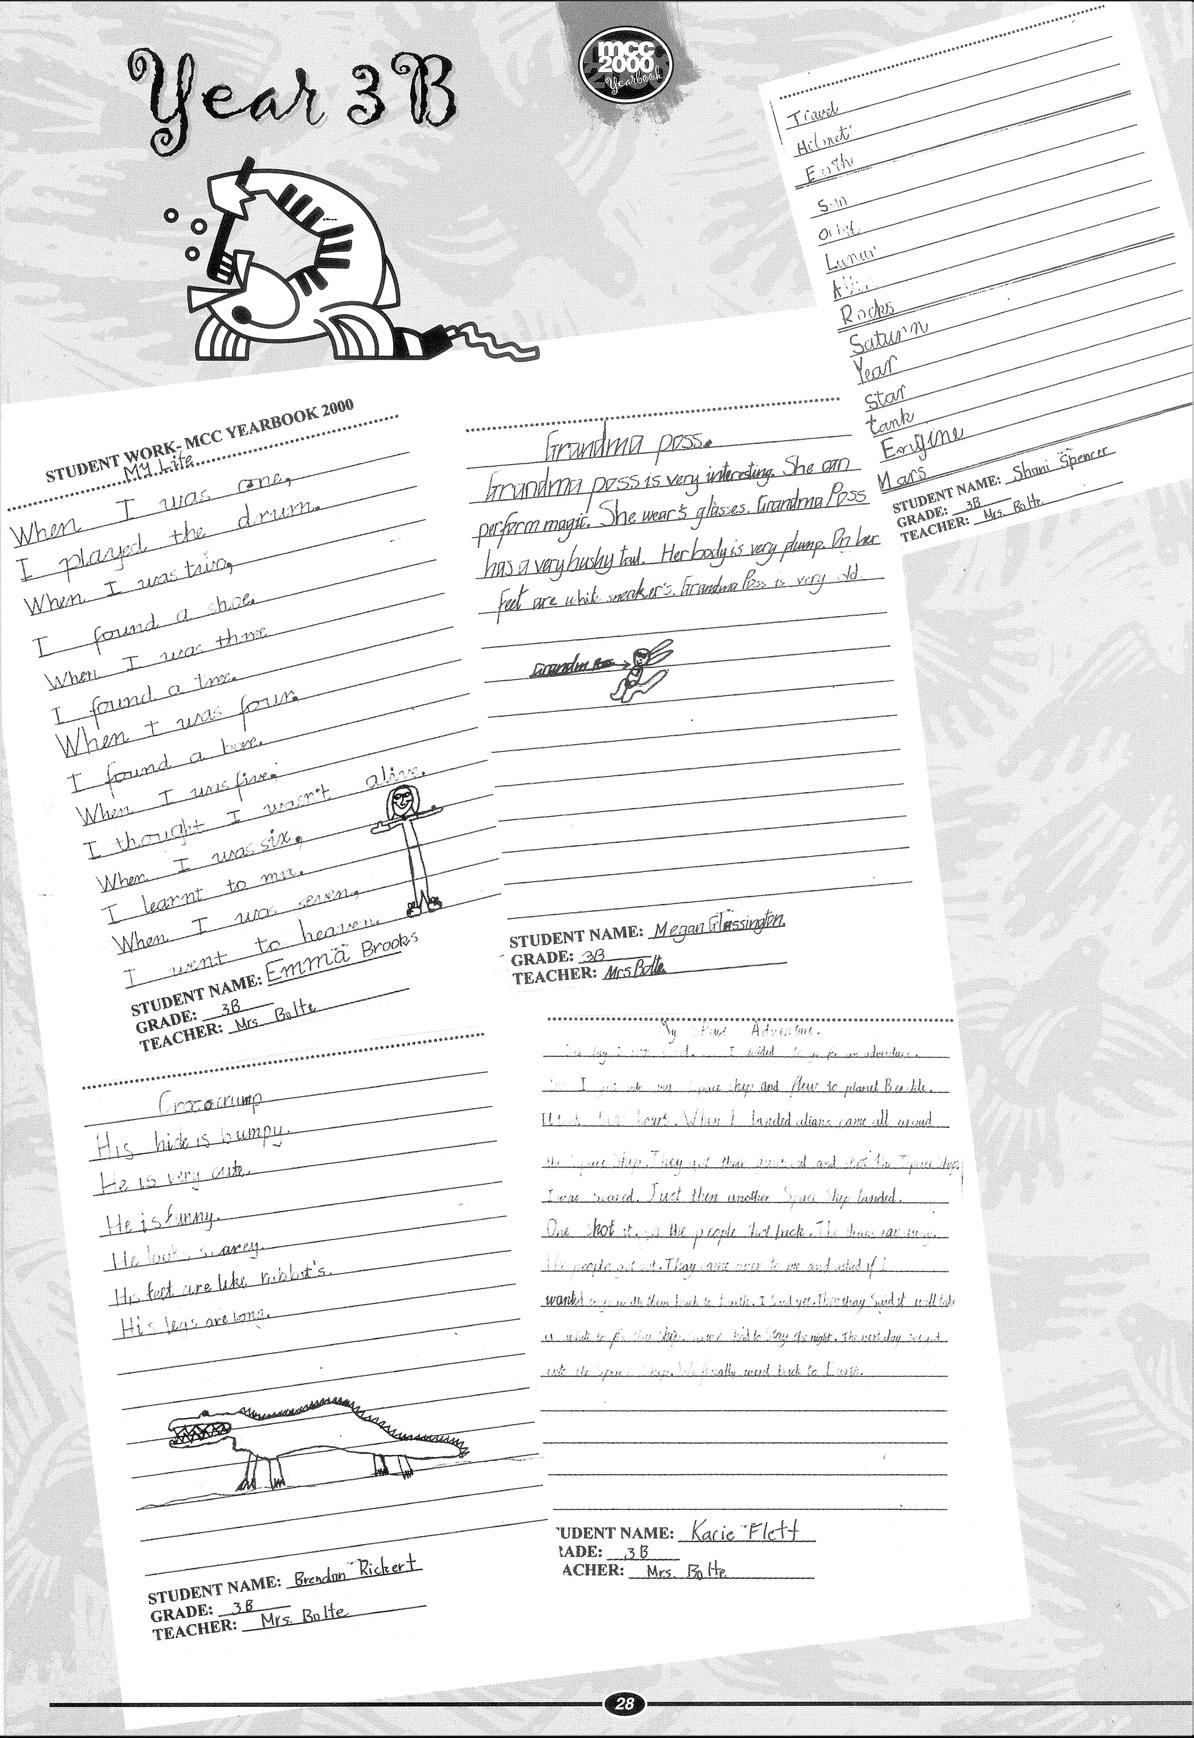 Year 3B
mcc
2000
Yearbook
Travel
Hilmet
Earth
Sun
Orbit
Lunar
Rocks
Saturn
Year
Star
tank
Engine
Mars
STUDENT NAME: Shani Spencer
GRADE: 3B
TEACHER: Mrs. Bolte
STUDENT WORK- MCC YEARBOOK 2000
My Life
When I was one,
I played the drum.
When I was two,
I found a shoe.
When I was three
I found a tree.
When I was four,
I found a
When I was five,
I thought I wasn't alive.
When I was six,
I learnt to
When I was seven,
I went to heaven.
STUDENT NAME: Emma Brooks
GRADE: 3B
TEACHER: Mrs. Bolte
Grandma poss.
Grandma poss is very interesting. She can
perform magic. She wear's glasses. Grandma Poss
has a very bushy tail. Her body is very plump. On her
feet are white sneaker's. Grandma Poss is very old.
Grandma Poss
STUDENT NAME: Megan Glassington
GRADE: 3B
TEACHER: Mrs Bolte
Crococrump
His hide is bumpy.
He is very cute.
He is funny.
He looks scarey.
His feet are like rabbit's.
His legs are long.
STUDENT NAME: Brendan Rickert
GRADE: 3B
TEACHER: Mrs. Bolte
My Space Adventure.
I decided to go for an adventure.
I got into my space ship and flew to planet
hours. When I landed alians came all around
the Space Ship. They got their and shot the Space Ship.
I was scared. Just then another Space Ship landed.
One shot it, so the people shot back. The aliens ran away.
The people got out. They came over to me and asked if I
wanted to go with them back to Earth. I said yes. Then they said it will take
a while to fix the ship. So we had to stay the night. The next day we got
into the Space Ship. We finally went back to Earth.
UDENT NAME: Kacie Flett
RADE: 3B
ACHER: Mrs. Bolte
28